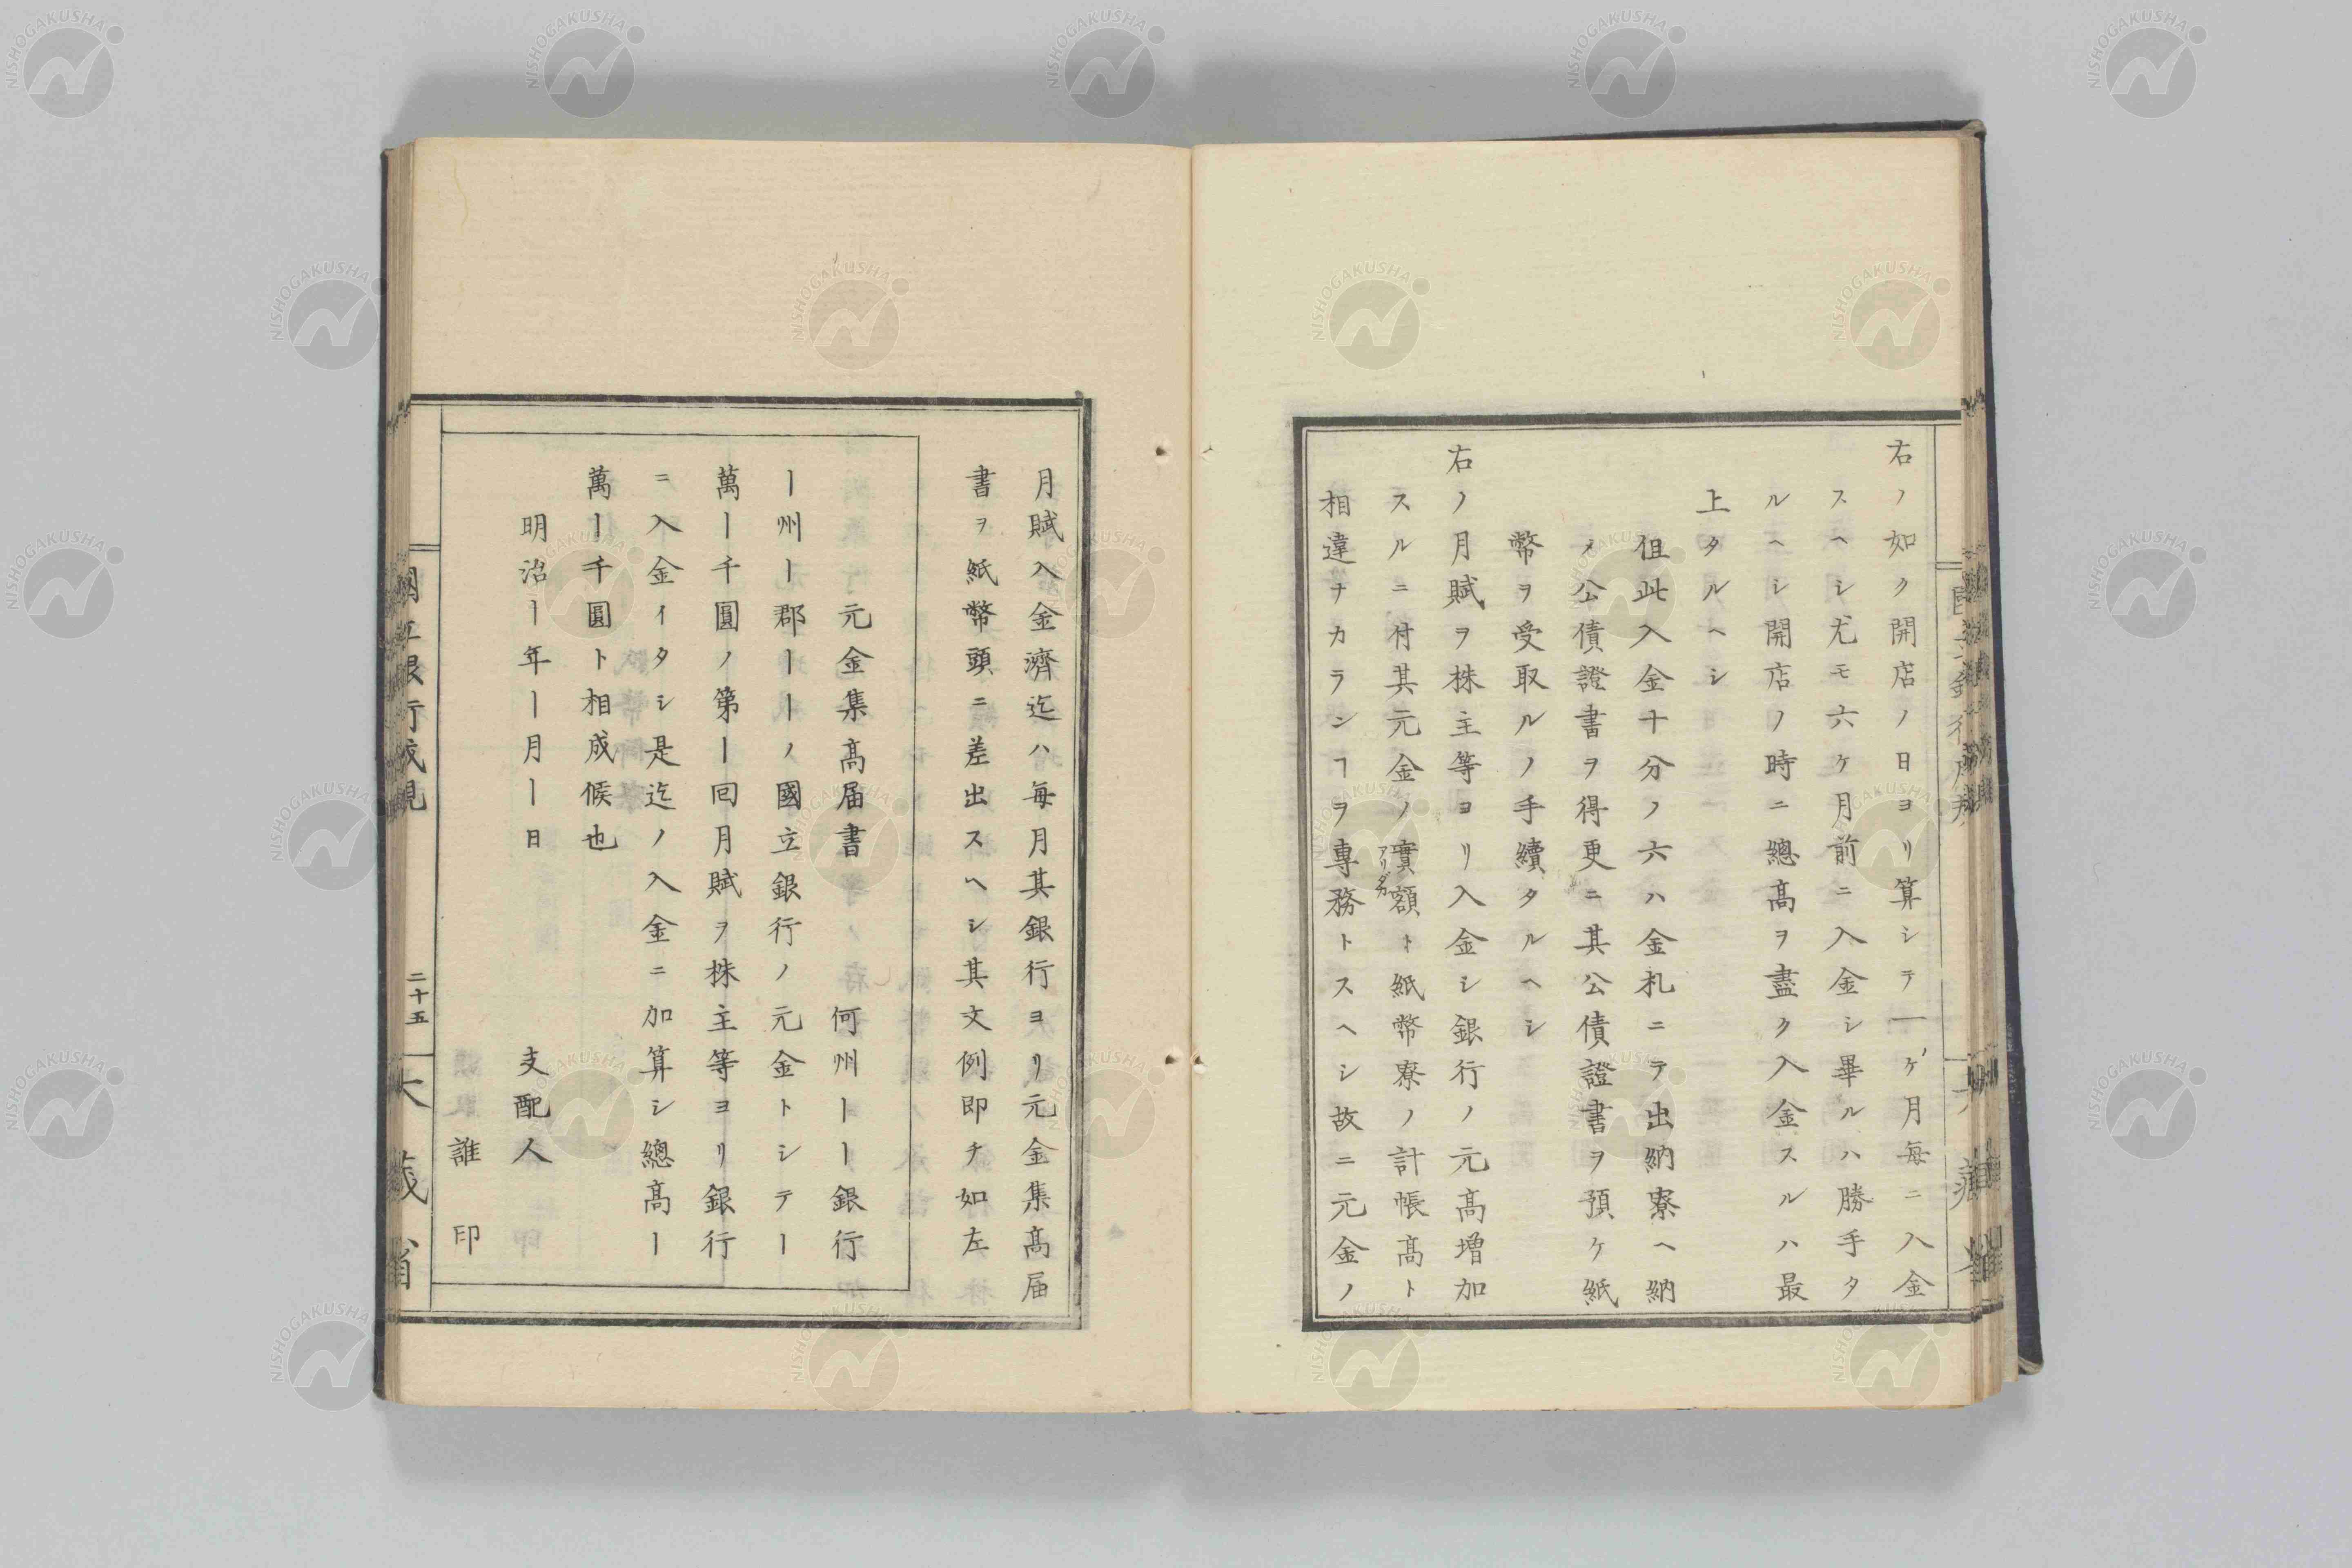 右ノ如ク開店ノ日ヨリ算シテ一ケ月每ニ入金
スヘシ尤モ六ケ月前ニ入金シ畢ルハ勝手タ
ルヘシ開店ノ時ニ總髙ヲ盡ク入金スルハ最
上タルヘシ
伹此入金十分ノ六ハ金札ニテ出納寮ヘ納
メ公債證書ヲ得更ニ其公債證書ヲ預ケ紙
幣ヲ受取ルノ手續タルヘシ
右ノ月賦ヲ株主等ヨリ入金シ銀行ノ元髙増加
スルニ付其元金ノ實額ト紙幣寮ノ計帳髙ト
アリダカ
相違ナカランヿヲ專務トスヘシ故ニ元金ノ
月賦入金濟迄ハ每月其銀行ヨリ元金集髙届
書ヲ紙幣頭ニ差出スヘシ其文例即チ如左
元金集髙届書
何州ーー銀行
ー州ー郡ーーノ國立銀行ノ元金トシテー
萬ー千圓ノ第ー回月賦ヲ株主等ヨリ銀行
ニ入金イタシ是迄ノ入金ニ加算シ總髙ー
萬ー千圓ト相成候也
明治ー年ー月ー日
支配人
誰 印
二十五
NISHOGAKUSHA